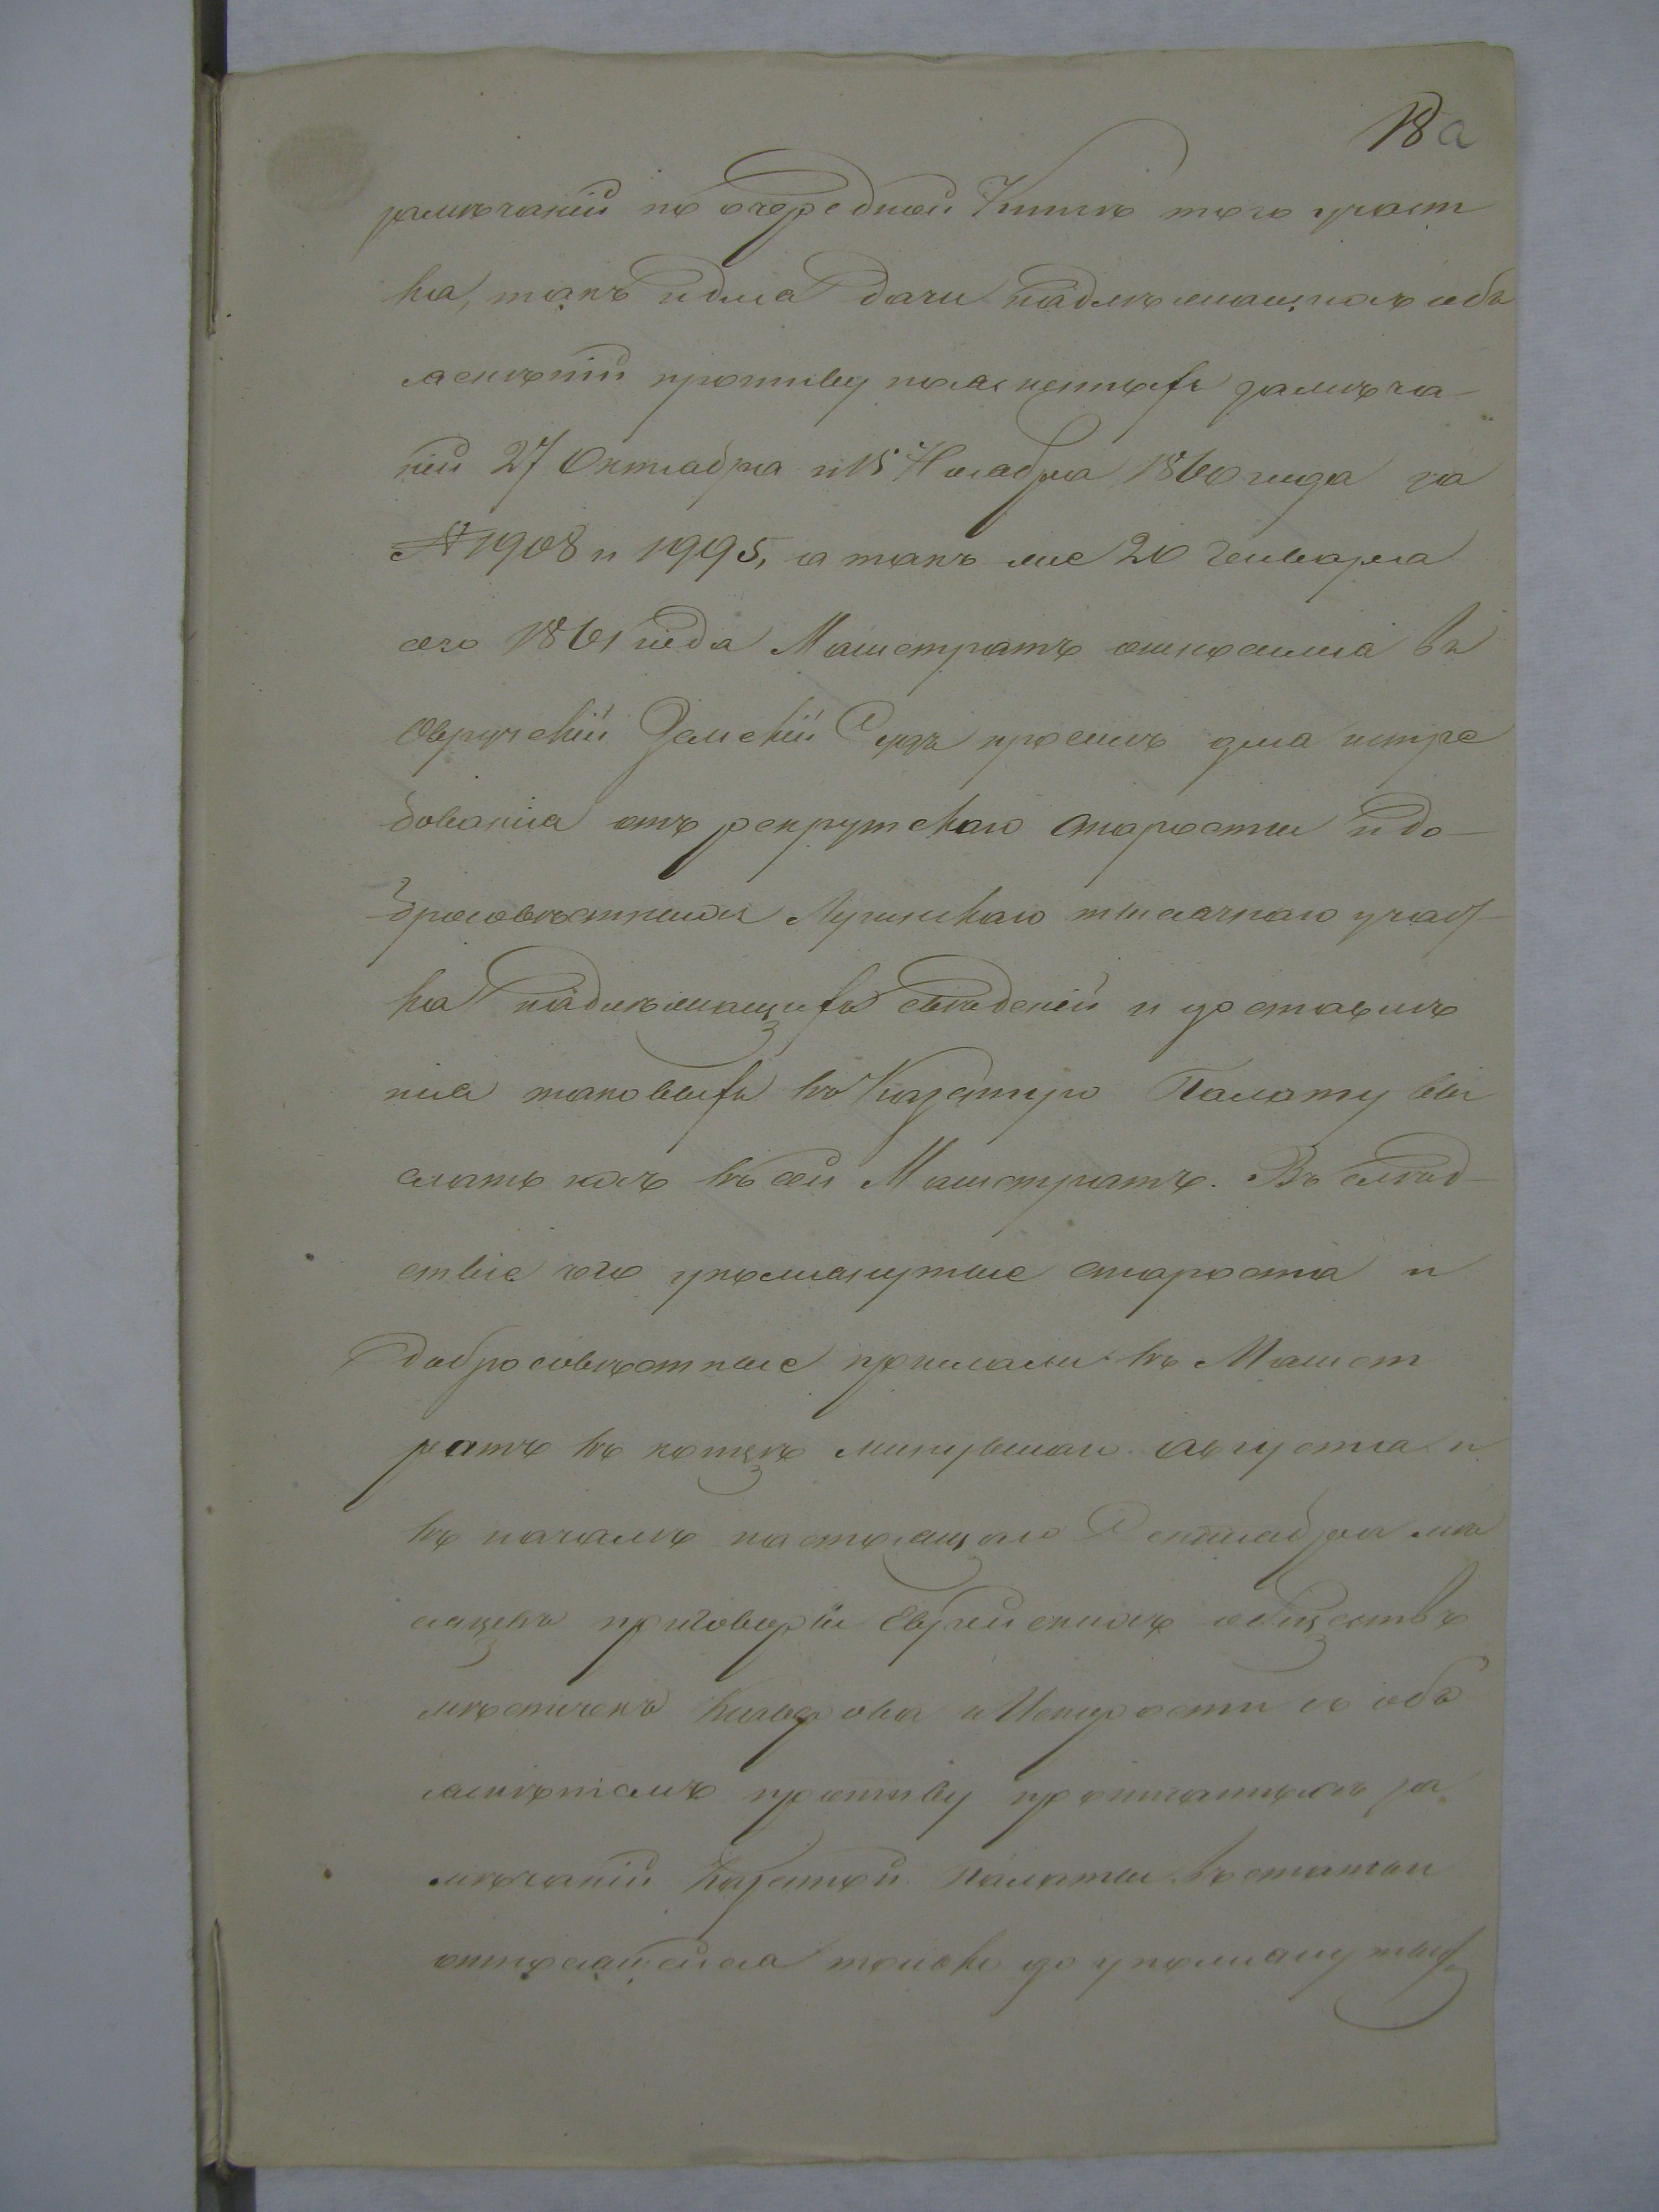 18 а
замѣчаній по очередной Книгѣ того участ
ка, такъ и для дачи надлѣжащихъ объ
яснѣній противу полненныхъ замѣча-
ній 27 Октября и 15 Ноября 1860 года за
№ 1908 и 1995, а такъ же 20 Генваря
сего 1861 года Магистратъ относился въ
Овручскій Земскій Судъ просилъ для истре
бованія отъ рекрутскаго старосты и до-
бросовѣстныхъ Лугинскаго тысячнаго участ-
ка надлѣжащихъ свѣденій и доставлѣ
нія таковыхъ въ Казенную Палату вы
слать ихъ въ сей Магистратъ. Въ слѣд-
ствіе чего упомянутые староста и
добросовѣстные прислали въ Магист
ратъ въ концѣ минувшаго Августа и
въ началѣ настоящаго Сентября мѣ
сяцевъ приговоры Еврейскихъ обществъ
мѣстечекъ и Искорости съ объ
яснѣніемъ противу прописанныхъ за
мѣчаній Казенной Палаты въ статьи
относящейся только до упомянутыхъ